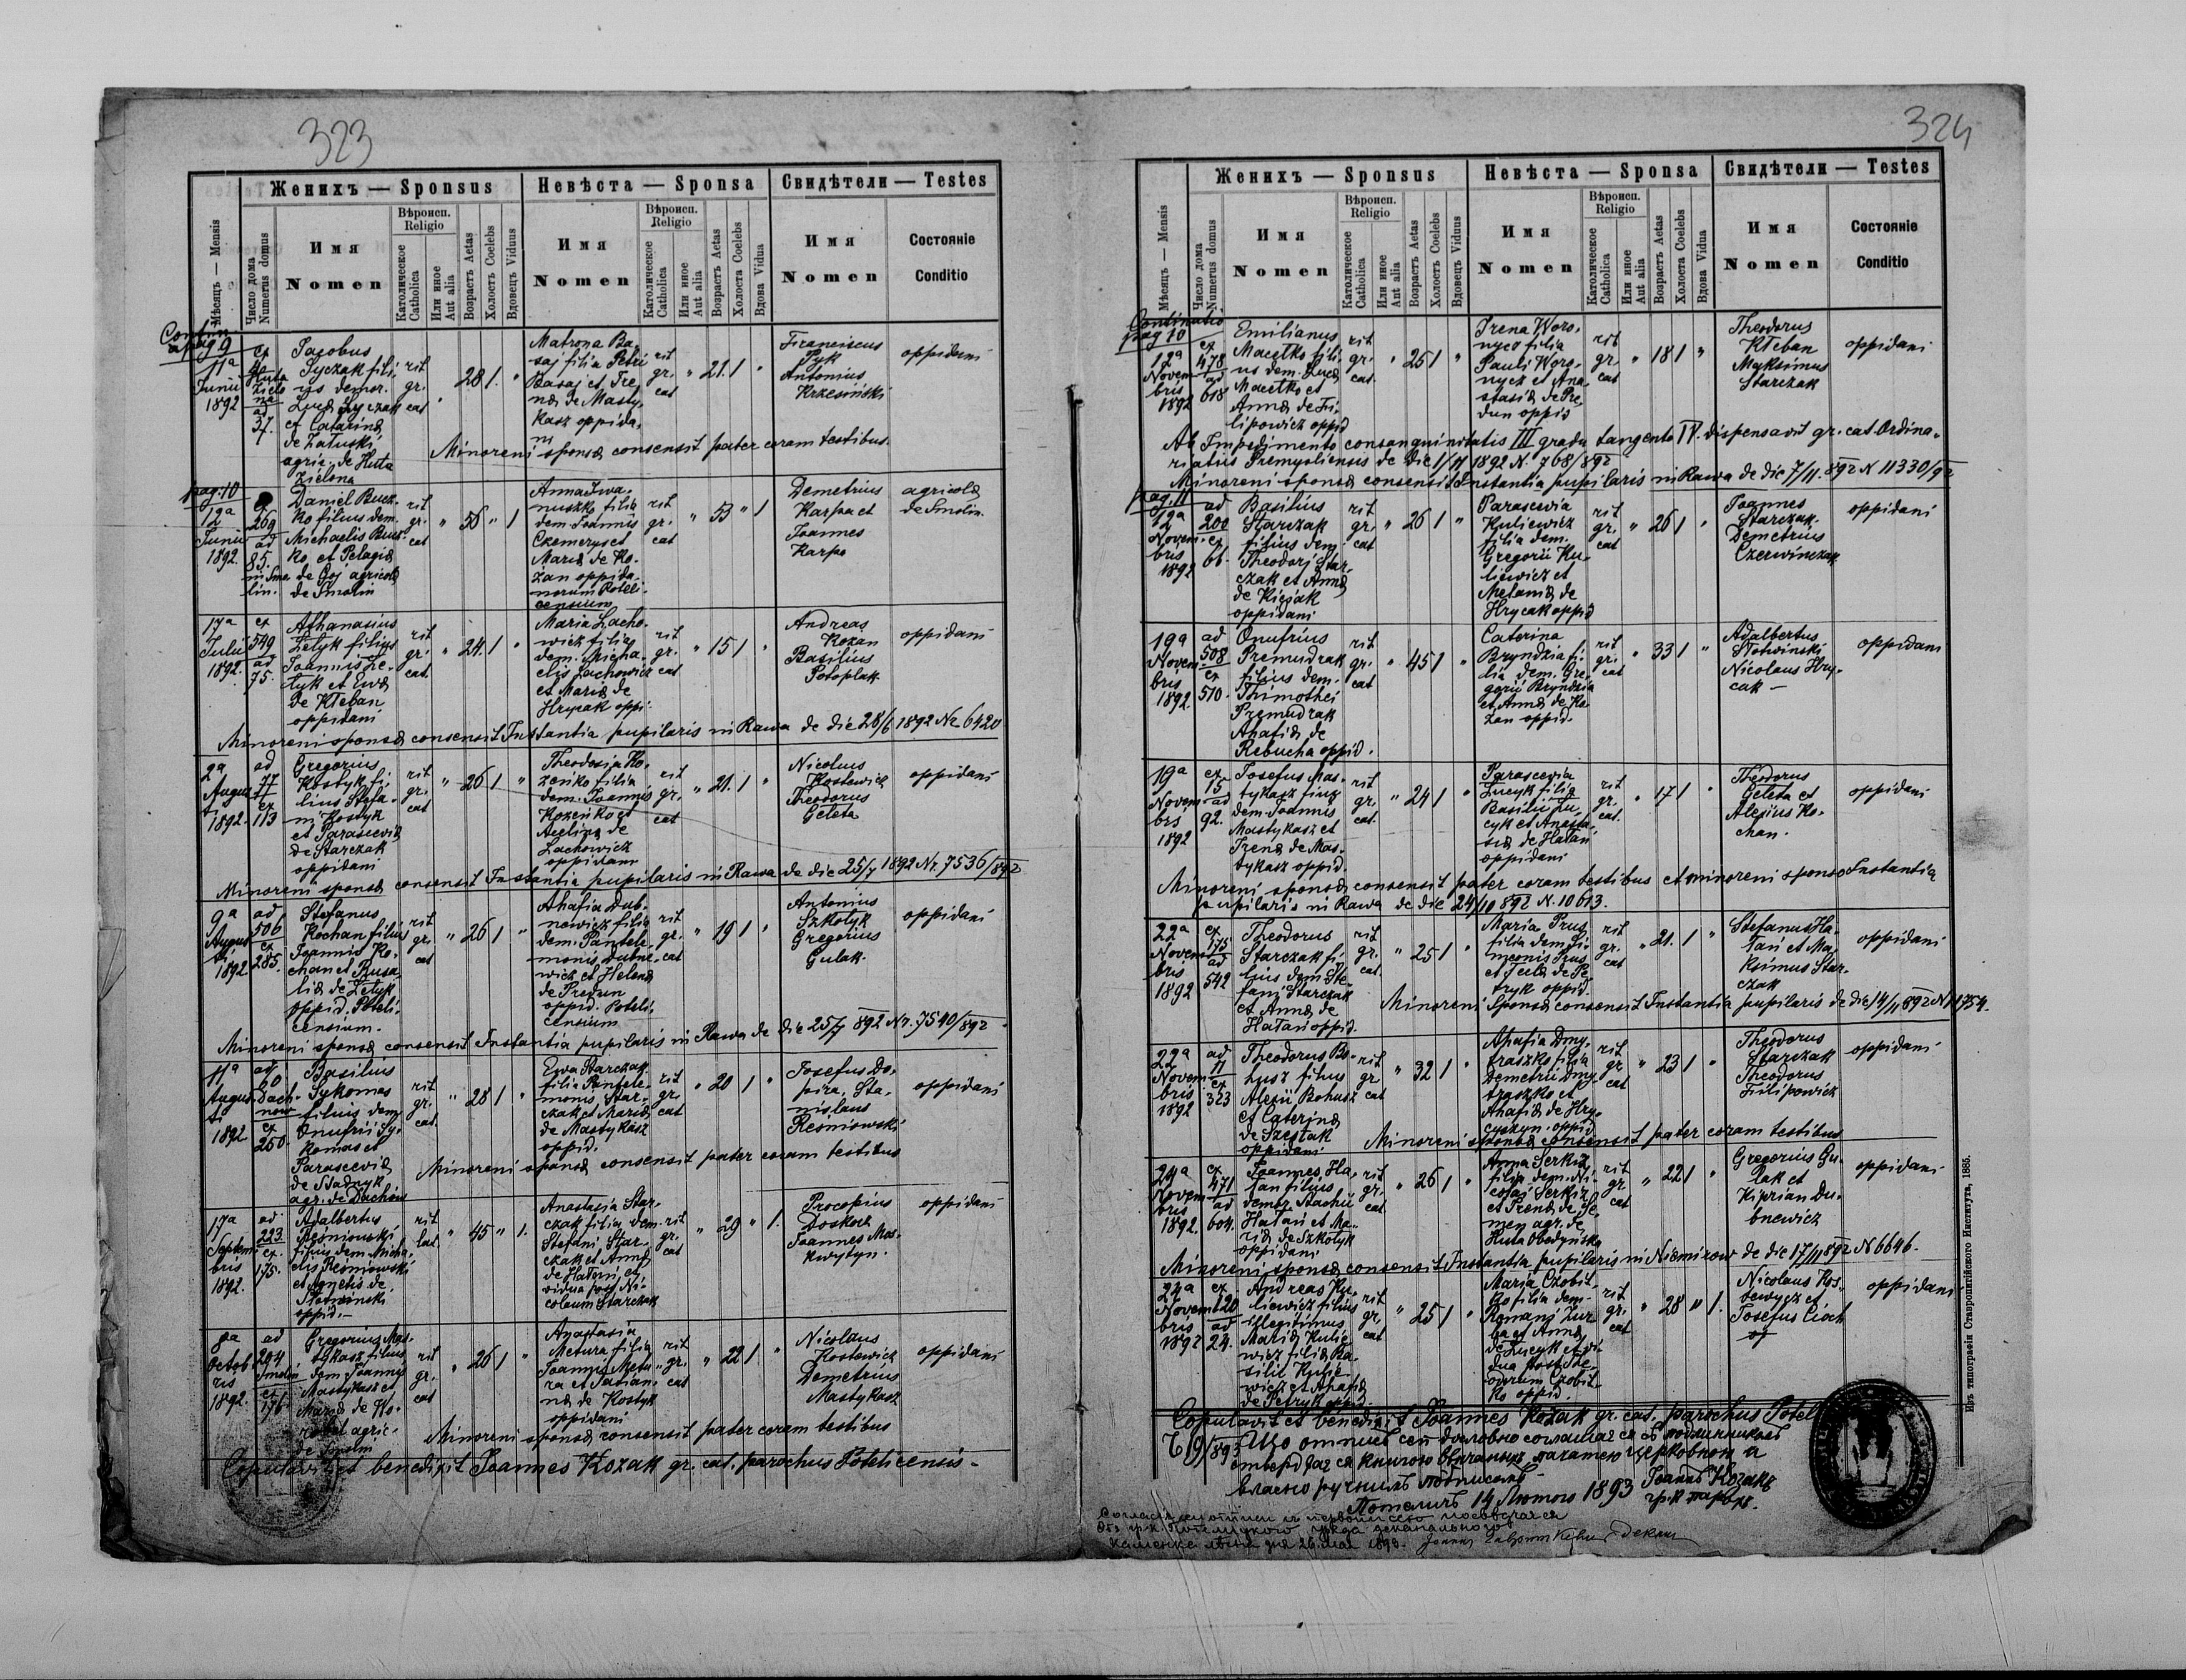 323
Женихъ — Sponsus
Невѣста — Sponsa
Свидѣтели — Testes
Мѣсяцъ — Mensis
Число дома
Numerus domus
Имя
Nomen
Вѣроисп.
Religio
Католическое
Catholica
Или иное
Aut alia
Возрастъ Aetas
Холостъ Coelebs
Вдовецъ Viduus
Имя
Nomen
Вѣроисп.
Religio
Католическое
Catholica
Или иное
Aut alia
Возрастъ Aetas
Холоста Coelebs
Вдова Vidua
Имя
Nomen
Состояніе
Conditio
pag 9
11a
Junii
1892
ex
Huta
Zielo
na
ad
37.
Jacobus
Łyczak fili-
us demor.
Lucæ Łyczak
et Catarinæ
de Załuski
agric. de Huta
Zielona
rit
gr.
cat
"
28
1.
"
Matrona Ba-
saj filia Petri
Basaj et Ire-
næ de Masty-
kasz oppida-
ni
rit
gr.
cat
"
21.
1
"
Franciscus
Pyk
Antonius
Krzesiński
oppidani
Minoreni sponsæ consensit pater coram testibus.
pag: 10
12a
Junii
1892.
269
ad
85.
in Smo-
lin.
Daniel Bucz-
ko filius dem.
Michaelis Bucz-
ko et Pelagiæ
de Goj agricolæ
de Smolin
rit
gr.
cat
"
56
"
1
Anna Iwa-
nuszko filia
dem. Joannis
Czemerys et
Mariæ de Ko-
zan oppida-
norum Poteli-
censium
rit
gr.
cat
"
53
"
1
Demetrius
Karpa et
Joannes
Karpa
agricolæ
de Smolin.
17a
Julii
1892.
ex
549
ad
75.
Athanasius
Zełyk filius
Joannis Ze-
łyk et Evæ
de Kłeban
oppidani
rit
gr.
cat.
"
24.
1
"
Maria Lacho-
wicz filia
dem. Micha-
elis Lachowicz
et Mariæ de
Hrycak oppi.
rit
gr.
cat
"
15
1
"
Andreas
Kozan
Basilius
Potoplak
oppidani
Minoreni sponsæ consensit Instantia pupilaris in Rawa de die 28/6 1892 Nr 6420
2a
Augus
ti
1892.
ad
77
ex
113
Gregorius
Kostyk fi-
lius Stefa-
ni Kostyk
et Parasceviæ
de Starczak
oppidani
rit
gr.
cat
"
26
1
"
Theodosia Ko-
zenko filia
dem. Joannis
Kozenko et
Acelinæ de
Lachowicz
oppidani
rit
gr.
cat
"
21.
1
"
Nicolaus
Kostewicz
Theodorus
Geleta
oppidani
Minoreni sponsæ consensit Instantia pupilaris in Rawa de die 25/7 1892 Nr. 7536/892
9a
Augus
ti
1892
ad
506
ex
285.
Stefanus
Kochan filius
Joannis Ko-
chan et Rosa-
liæ de Zełyk
oppid. Poteli-
censium.
rit
gr.
cat
"
26
1
"
Ahafia Dub-
newicz filia
dem. Pantele-
monis Dubne-
wicz et Helenæ
de Predun
oppid. Poteli-
censium
rit
gr.
cat
"
19
1
"
Antonius
Szkolyk
Gregorius
Gulak.
oppidani
Minoreni sponsæ consensit Instantia pupilaris in Rawa de die 25/7 892 Nr. 7540/892
11a
Augus
ti
1892
ad
60
Dach-
now
ex
250
Basilius
Sykomas
filius dem.
Onufrii Sy-
komas et
Parasceviæ
de Stadnyk
agr. de Dachnów
rit
gr.
cat.
"
28
1
"
Ewa Starczak
filia Pantele-
monis Star-
czak et Mariæ
de Mastykasz
oppid.
rit
gr.
cat
"
20
1
"
Josefus Do-
pira, Sta-
nislaus
Resniowski
oppidani
Minoreni sponsæ consensit pater coram testibus
17a
Septem
bris
1892.
ad
223.
ex.
175.
Adalbertus
Resniowski
filius dem. Micha-
elis Resniowski
et Agnetis de
Słotwinski
oppid.—
rit
lat.
"
45
"
1.
Anastasia Star-
czak filia dem.
Stefani Star-
czak et Annæ
de Hałani et
vidua post Ni-
colaum Starczak
rit
gr.
cat
"
29
"
1.
Procopius
Doskocz
Joannes Mos-
kwytyn.
oppidani
8a
Octob
ris
1892.
ad
204
Smolin
ex
176
Gregorius Mas-
tykasz filius
dem Joannis
Mastykasz et
Mariæ de Ko-
agric-
de Smolin
rit
gr.
cat
"
26
1
"
Anastasia
Metura filia
Joannis Metu-
ra et Tatian-
næ de Kostyk
oppidani
rit
gr.
cat
"
22
1
"
Nicolaus
Kostewicz
Demetrius
Mastykasz
oppidani
Minoreni sponsæ consensit pater coram testibus
Copulavit et benedixit Joannes Kozak gr. cat. parochus Potelicensis -
324
Женихъ — Sponsus
Невѣста — Sponsa
Свидѣтели — Testes
Мѣсяцъ — Mensis
Число дома
Numerus domus
Имя
Nomen
Вѣроисп.
Religio
Католическое
Catholica
Или иное
Aut alia
Возрастъ Aetas
Холостъ Coelebs
Вдовецъ Viduus
Имя
Nomen
Вѣроисп.
Religio
Католическое
Catholica
Или иное
Aut alia
Возрастъ Aetas
Холоста Coelebs
Вдова Vidua
Имя
Nomen
Состояніе
Conditio
Continuatio
pag 10
12a
Novem
bris
1892
ex
478
ad
618
Emilianus
Macetko fili-
us dem. Lucæ
Macetko et
Annæ de Fi-
lipowicz oppid
rit
gr.
cat.
"
25
1
"
Irena Woro-
nycz filia
Pauli Woro-
nycz et Ana-
stasiæ de Pre-
dun oppid
rit
gr.
cat
"
18
1
"
Theodorus
Kłeban
Maksimus
Starczak
oppidani
Ab Impedimento consanguinitatis III gradu tangente IV. dispensavit gr. cat. Ordina-
riatus Premysliensis de die 1/11 1892 N. 768/892
Minoreni sponsæ consensit Instantia pupilaris in Rawa de die 7/11. 892 N 11330/92
pag. 11
12a
Novem-
bris
1892
ad
200
ex
66.
Basilius
Starczak
filius dem.
Theodori Star-
czak et Annæ
de Kiciak
oppidani
rit
gr.
cat
"
26
1
"
Parascevia
Kuliewicz
filia dem.
Gregorii Ku-
liewicz et
Melaniæ de
Hrycak oppid
rit
gr.
cat
"
26
1
"
Joannes
Starczak.
Demetrius
Czerwinczak
oppidani
19a
Novem
bris
1892
ad
508
ex
510.
Onufrius
Premudrak
filius dem.
Thimothei
Premudrak
Ahafiæ de
Rebucha oppid.
rit
gr.
cat
"
45
1
"
Caterina
Bryndzia fi-
lia dem. Gre-
gorii Bryndzia
et Annæ de Ko-
zan oppid.
rit
gr.
cat
"
33
1
"
Adalbertus
Słotwinski
Nicolaus Hry-
cak —
oppidani
19a
Novem
bris
1892
ex
15
ad
92.
Josefus Mas-
tykasz filius
dem. Joannis
Mastykasz et
Irenæ de Mas-
tykasz oppid.
rit
gr.
cat.
"
24
1
"
Parascevia
Lucyk filia
Basilii Lu-
cyk et Anasta-
siæ de Hałan
oppidani
rit
gr.
cat.
"
17
1
"
Theodorus
Geleta et
Alexius Ko-
chan.
oppidani
Minoreni sponsæ consensit pater coram testibus et minoreni sponso Instantia
pupilaris in Rawa de die 24/10 892 N. 10613.
22a
Novem
bris
1892
ex
175
ad
542
Theodorus
Starczak fi-
lius dem. Ste-
fani Starczak
et Annæ de
Hałan oppid.
rit
gr.
cat
"
25
1
"
Maria Prus
filia dem Si-
meonis Prus
et Teclæ de Pe-
tryk oppid.
rit
gr.
cat
"
21.
1
"
Stefanus Ha-
łan et Ma-
ksimus Star-
czak
oppidani
Minoreni Sponsæ consensit Instantia pupilaris de die 14/11 892 N 11754.
22a
Novem
bris
1892
ad
11
ex
323
Theodorus Bo-
husz filius
Alexii Bohusz
et Caterinæ
de Szestak
oppidani
rit
gr
cat
"
32
1
"
Ahafia Dmy-
traszko filia
Demetrii Dmy-
traszko et
Ahafiæ de Hry-
cyszyn. oppid
rit
gr
cat
"
23
1
"
Theodorus
Starczak
Theodorus
Filipowicz
oppidani
Minoreni sponsæ consensit pater coram testibus
24a
Novem
bris
1892.
ex
471
ad
604.
Joannes Ha-
łan filius
dem. Stachii
Hałan et Ma-
riæ de Szkolyk
oppidani
rit
gr.
cat
"
26
1
"
Anna Serkiz
filia dem. Ni-
colai Serkiz
et Irenæ de Se-
men agr. de
Huta Obedynska
rit
gr.
cat
"
22
1
"
Gregorius Gu-
lak et
Kiprian Du-
bnewicz
oppidani
Minoreni sponsæ consensit Instantia pupilaris in Niemirow de die 17/11 892 N 6646.
24a
Novem
bris
1892
ex
120
ad
24.
Andreas Ku-
liewicz filius
illegitimus
Mariæ Kulie-
wicz filiæ Ba-
silii Kulie-
wicz et Ahafiæ
de Petryk oppid.
rit
gr.
cat
"
25
1
"
Maria Czobit-
ko filia dem.
Romani Zur-
ba et Annæ
de Lucyk et vi-
dua post The-
odorum Czobit-
ko oppid.
rit
gr.
cat
"
28
"
1.
Nicolaus Kos-
tewycz et
Josefus Cioch
oppidani
Copulavit et benedixit Joannes Kozak gr. cat. parochus Potel
Що отписъ сей дословно соглашае ся съ подлинникомъ
стверджае ся книгою вѣнчаныхъ печатею церковною и
власно ручнымъ подписомъ -
Потеличъ 14 Лютого 1893 Іоаннъ Козакъ
гр. к. парохъ.
Изъ типографіи Ставропигійского Института, 1885.